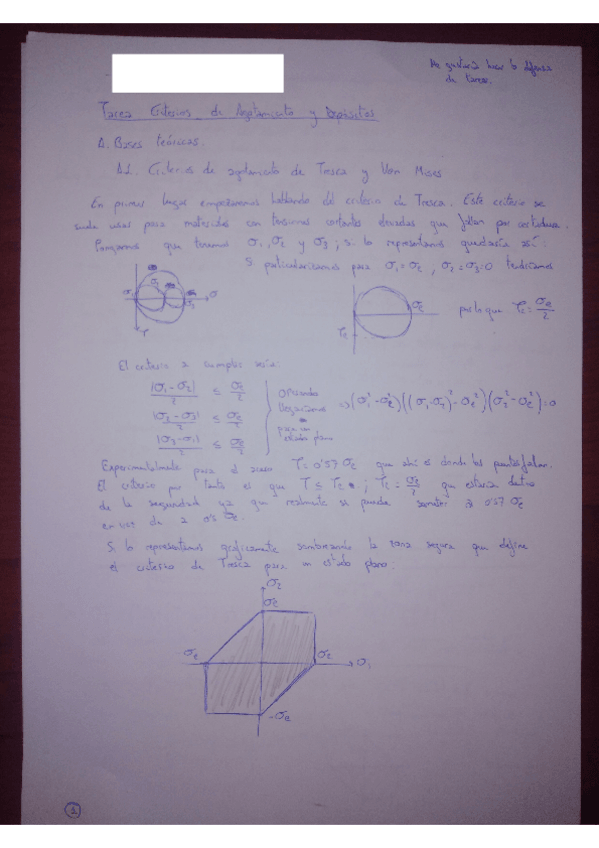 Me gustaría hacer la defensa
de tarea.
Tarea Criterios de Agotamiento y Depósitos
A. Bases teóricas.
A1. Criterios de agotamiento de Tresca y Von Mises
En primer lugar empezaremos hablando del criterio de Tresca. Este criterio se
suele usar para materiales con tensiones cortantes elevadas que fallan por cortadura.
Pongamos que tenemos σ1, σ2 y σ3; si lo representamos quedaría así:
Si particularizamos para σ1=σe, σ2=σ3=0 tendríamos
σ
σe
τ
τe
por lo que τe = σe/2
El criterio a cumplir sería:
|σ1-σ2|/2 ≤ σe/2
|σ2-σ3|/2 ≤ σe/2
|σ3-σ1|/2 ≤ σe/2
Operando
llegaríamos
para un
estado plano
=> (σ1²-σe²)((σ1-σ2)²-σe²)(σ2²-σe²)=0
Experimentalmente para el acero τ=0'57 σe que ahí es donde las fallan.
El criterio por tanto es que τ ≤ τe; τe = σe/2 que estaría dentro
de la seguridad ya que realmente se puede someter a 0'57 σe
en vez de a 0'5 σe.
Si lo representamos gráficamente sombreando la zona segura que define
el criterio de Tresca para un estado plano:
σ2
σe
σe
σe
σ1
-σe
1